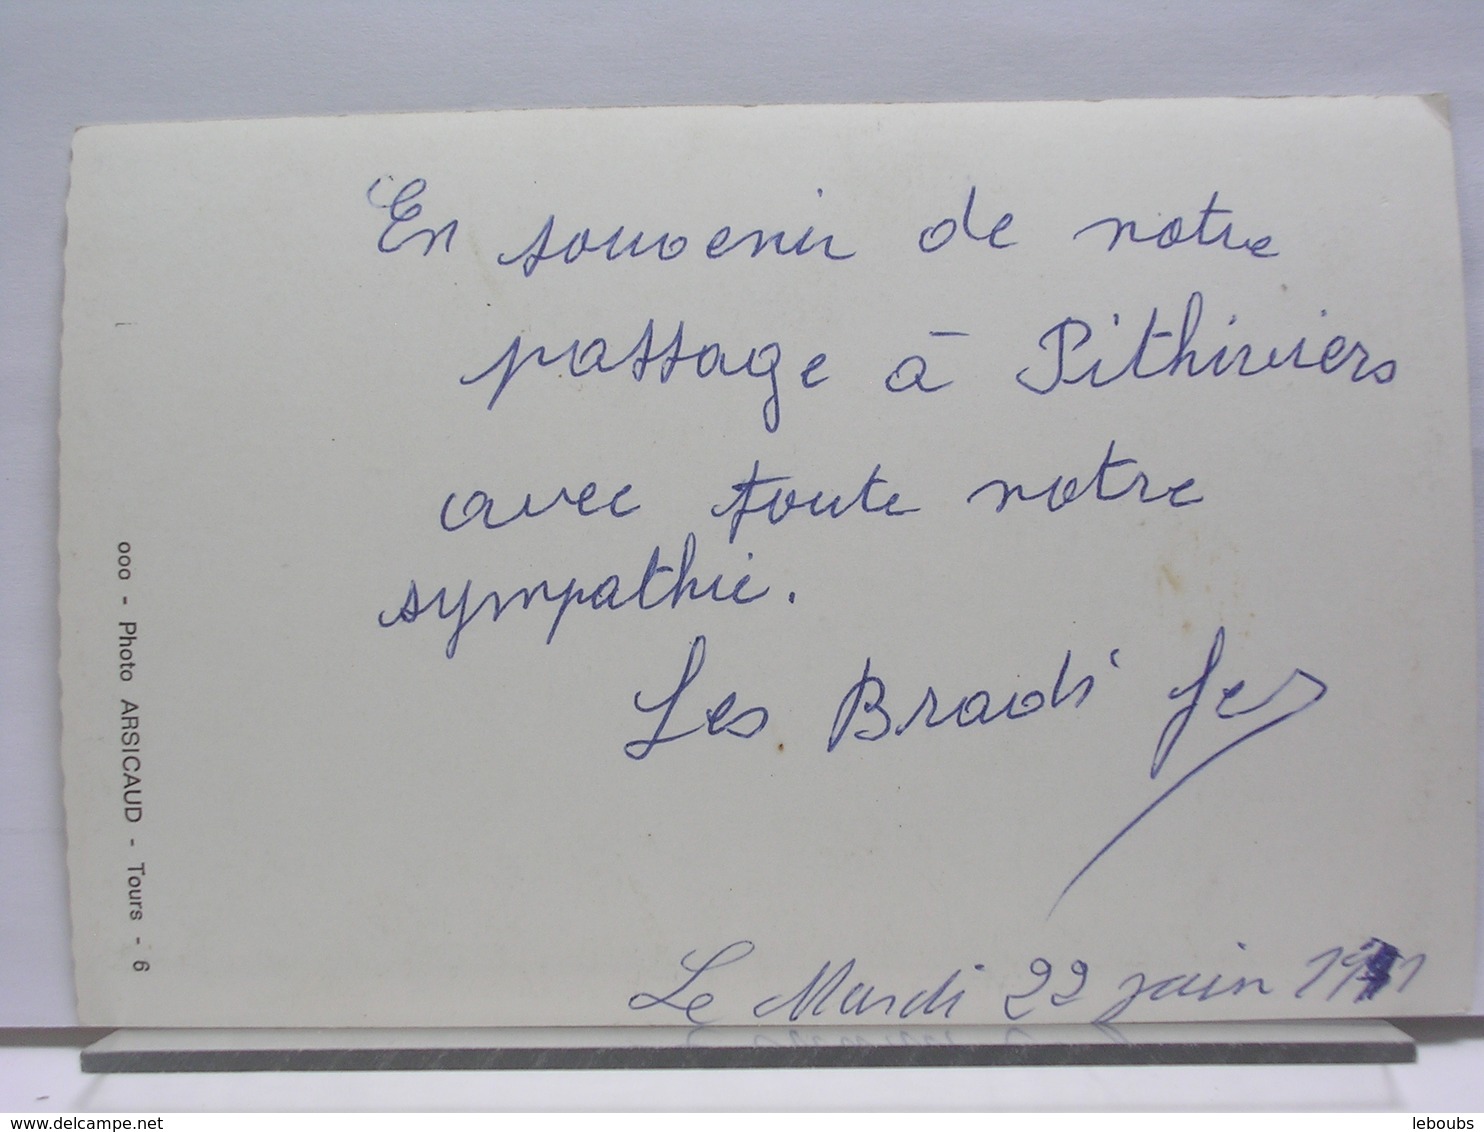 En souvenir de notre
passage à Pithiviers
avec toute notre
sympathie.
Les Bradi
Le Mardi 22 juin 1971
ooo - Photo ARSICAUD - Tours - 6
www.delcampe.net
leboubs